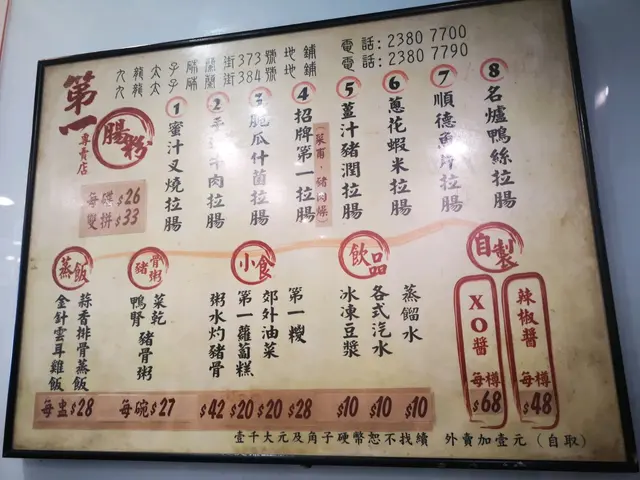 九龍太子砵蘭街373號地鋪 電話:2380 7700
九龍太子砵蘭街384號地鋪 電話:2380 7790
第一
腸粉
專賣店
每碟$26
雙拼$33
1 蜜汁叉燒拉腸
2 牛肉拉腸
3 脆瓜什菌拉腸
4 招牌第一拉腸
(菜甫·豬肉燥)
5 薑汁豬潤拉腸
6 蔥花蝦米拉腸
7 順德魚片拉腸
8 名爐鴨絲拉腸
蒸飯
金針雲耳雞飯
蒜香排骨蒸飯
每盅$28
豬骨粥
鴨腎菜乾豬骨粥
每碗$27
小食
粥水灼豬骨
$42
第一蘿蔔糕
$20
郊外油菜
$20
第一糉
$28
飲品
冰凍豆漿
$10
各式汽水
$10
蒸餾水
$10
自製
XO醬 每樽 $68
辣椒醬 每樽 $48
壹千大元及角子硬幣恕不找續 外賣加壹元(自取)